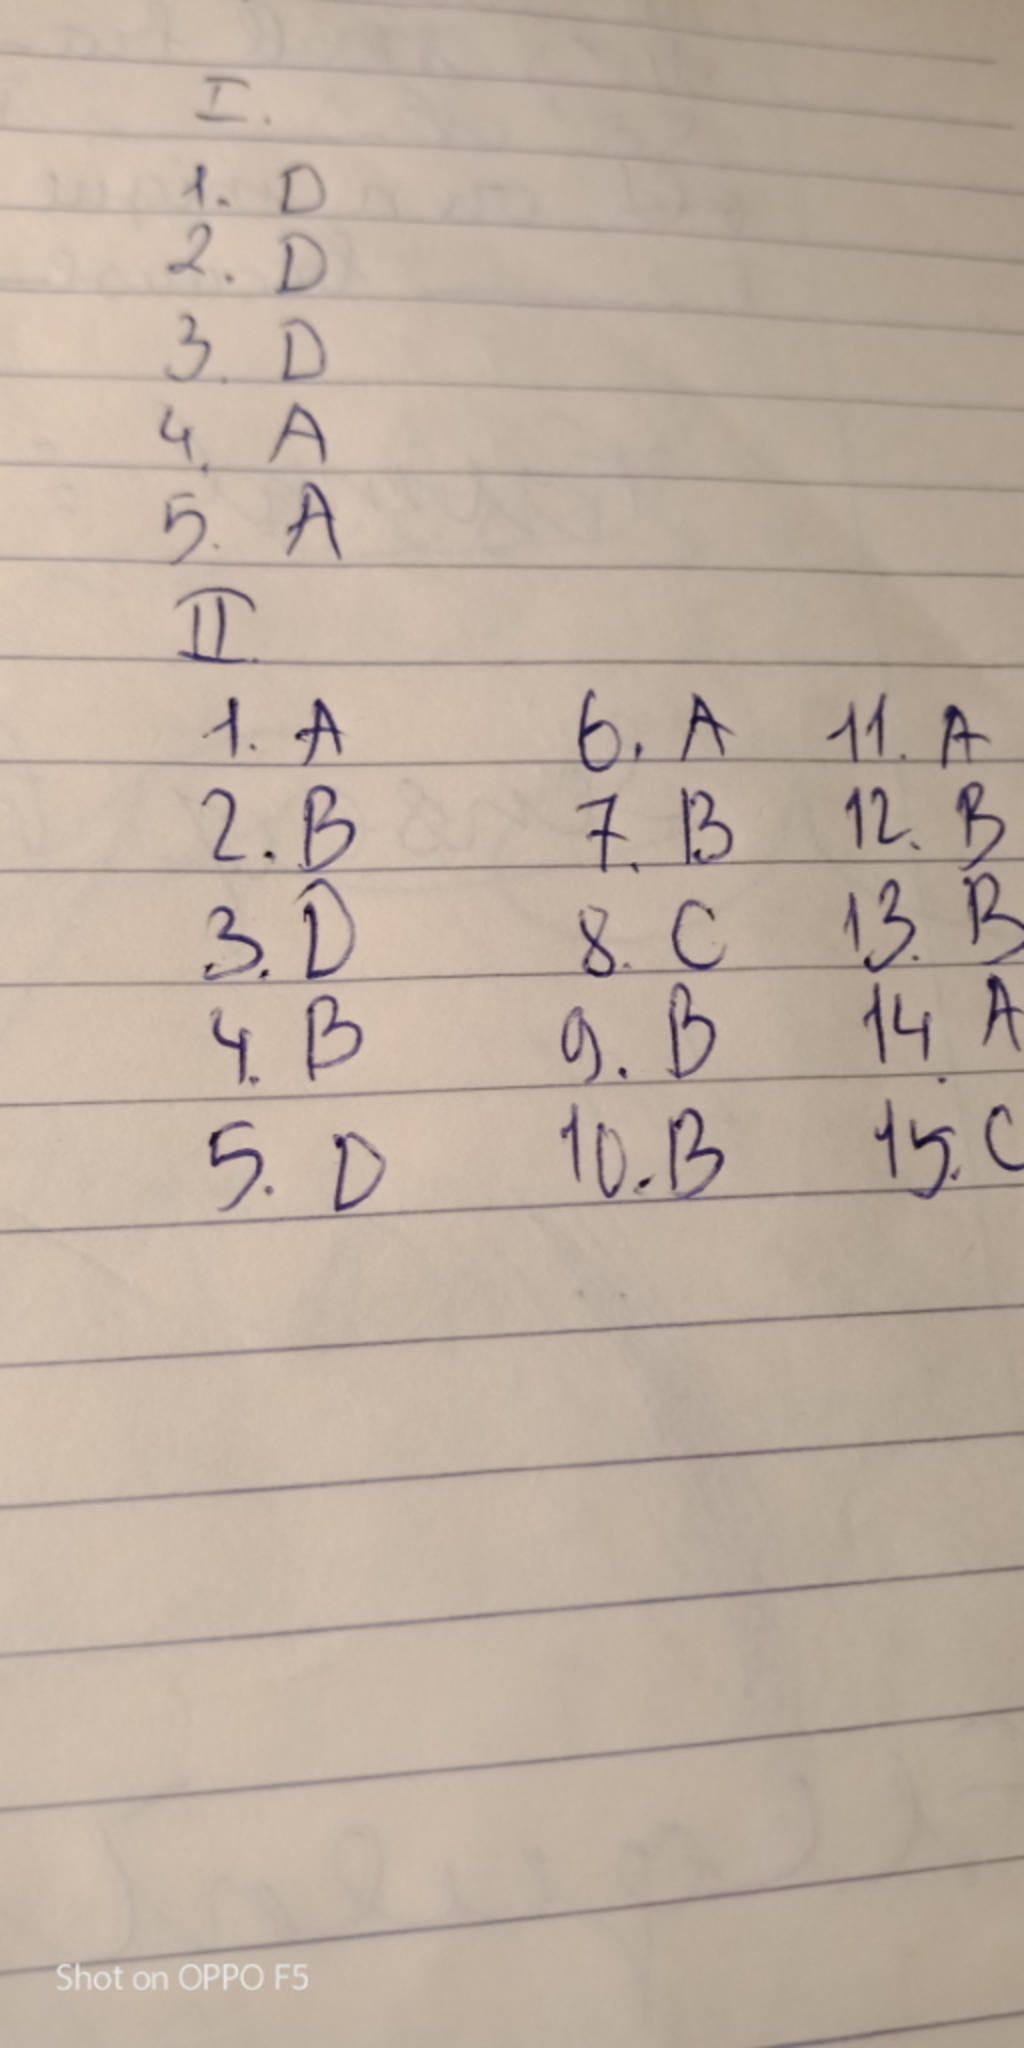 I.
1. D
2. D
3. D
4. A
5. A
II.
1. A 6. A 11. A
2. B 7. B 12. B
3. D 8. C 13. B
4. B 9. B 14. A
5. D 10. B 15. C
Shot on OPPO F5